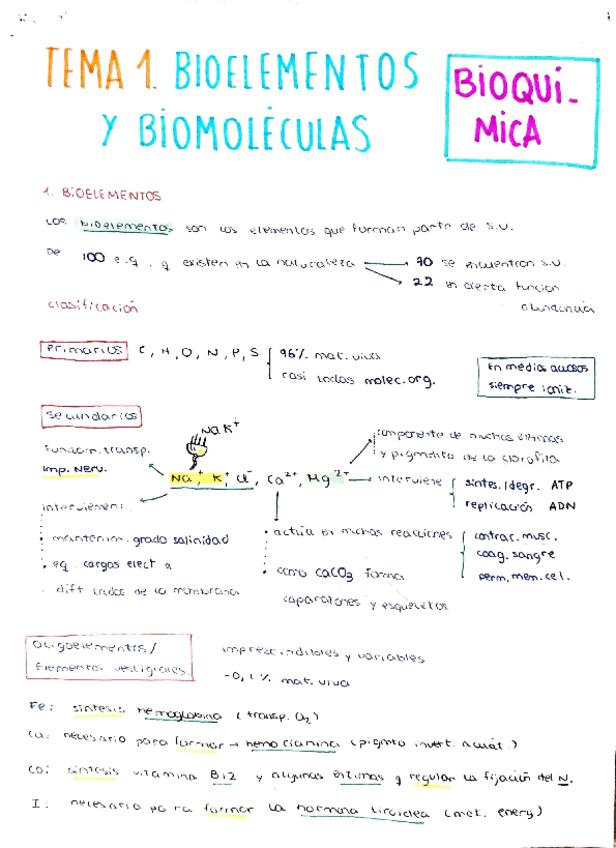 TEMA 1. BIOELEMENTOS
Y BIOMOLÉCULAS
BIOQUÍ-
MICA
1. BIOELEMENTOS
Los bioelementos son los elementos que forman parte de s.v.
De 100 e.q. q existen en la naturaleza
70 se encuentran s.v.
22 en cierta función
abundancia
clasificación
Primarios C, H, O, N, P, S
96% mat. viva
casi todas molec. org.
En medios acuosos
siempre ioniz.
Secundarios
Na K+
Fundam. transp.
imp. nerv.
Na+, K+, Cl-, Ca2+, Mg2+
componente de muchas enzimas
y pigmento de la clorofila
interviene
síntes./degr. ATP
replicación ADN
intervienen:
mantenim. grado salinidad
eq. cargas elect a
dift lados de la membrana
actúa en muchas reacciones
contrac. musc.
coag. sangre
perm. mem. cel.
como CaCO3 forma
caparazones y esqueletos
Oligoelementos/
Elementos vestigiales
imprescindibles y variables
-0,1% mat. viva
Fe: síntesis hemoglobina (transp. O2)
Cu: necesario para formar → hemocianina (pigmto invert. acuát.)
Co: síntesis vitamina B12 y algunas enzimas q regular la fijación del N.
I: necesario para formar la hormona tiroidea (met. energ)